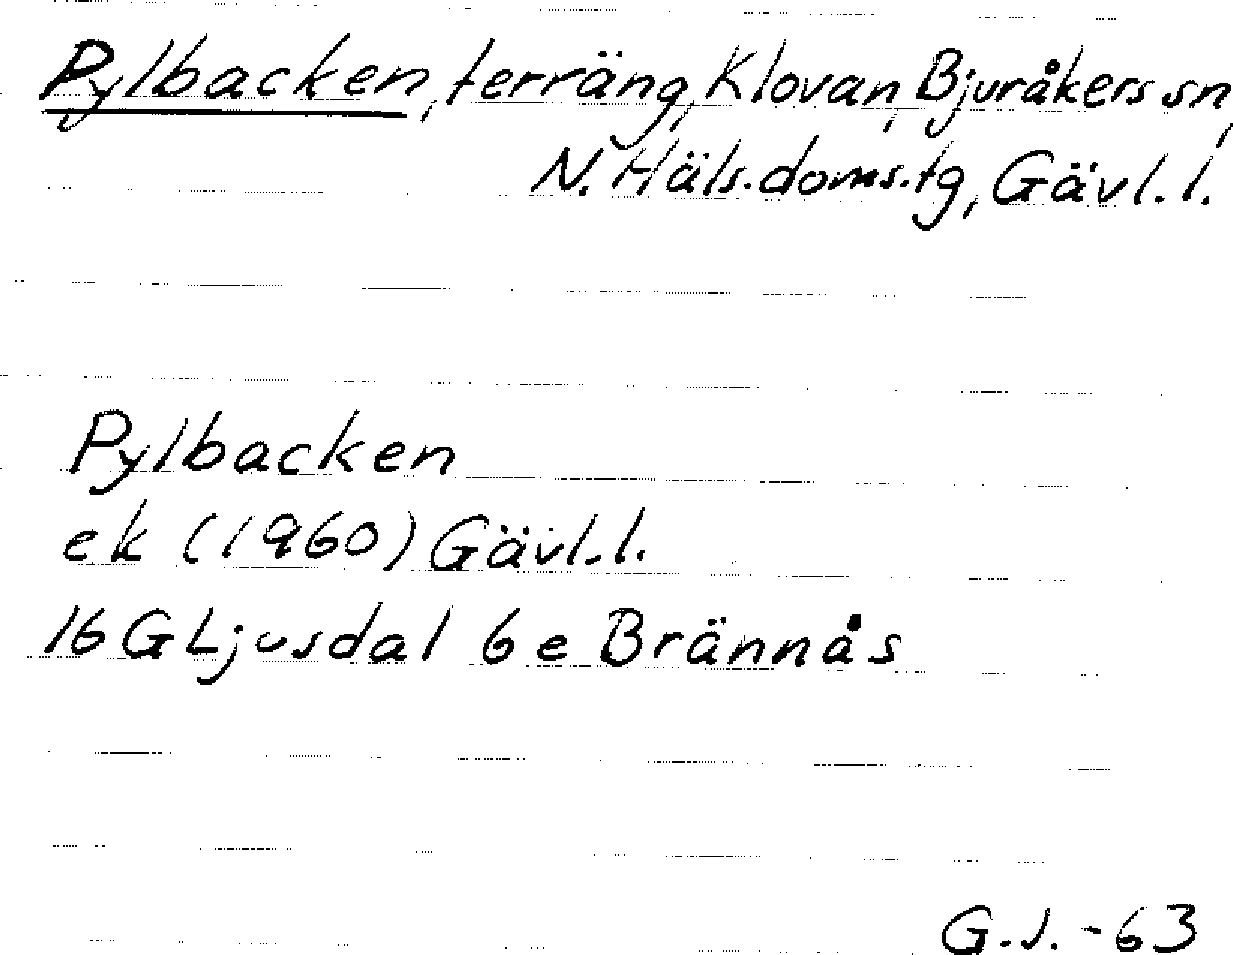 Pylbacken, terräng, Klovan, Bjuråkers sn,
N. Häls. doms. tg, Gävl. l.
Pylbacken
ek (1960) Gävl. l.
16 G Ljusdal 6 e Brännås
G. J. - 63